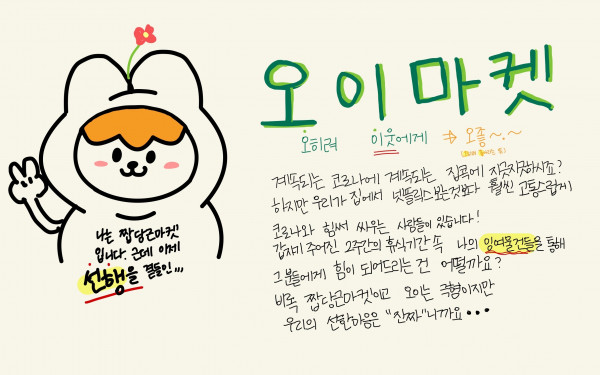 오이마켓
오히려 이웃에게 ⇒ 오쯤~.~
계속되는 코로나에 계속되는 집콕에 지긋지긋하시죠?
하지만 우리가 집에서 넷플릭스보는것보다 훨씬 고통스럽게
코로나와 힘써 싸우는 사람들이 있습니다!
갑자기 주어진 2주간의 휴식기간 속 나의 잉여물건들을 통해
그분들에게 힘이 되어드리는 건 어떨까요?
비록 짭당근마켓이고 오이는 극혐이지만
우리의 선한마음은 "잔짜"니까요...
나는 짭당근마켓
입니다. 근데 이제
선행을 곁들인,,,